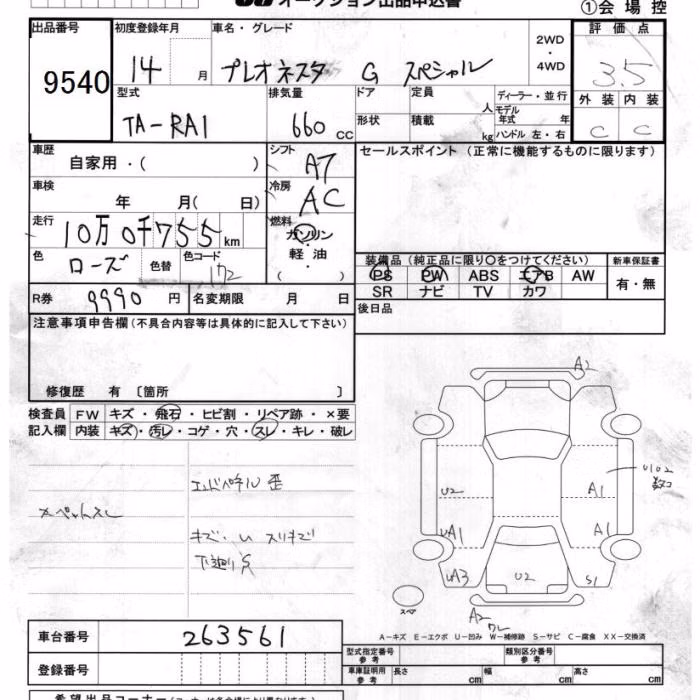 オークション出品申込書
①会場控
出品番号
9540
初度登録年月
14 月
車名・グレード
プレオネスタ G スペシャル
2WD
・
4WD
評価点
3.5
外装 内装
C C
型式
TA-RA1
排気量
660 CC
ドア
形状
定員
人
積載
kg
ディーラー・並行
モデル
年式 年
ハンドル 左・右
車歴
自家用・( )
シフト
AT
セールスポイント (正常に機能するものに限ります)
車検
年 月( 日)
冷房
AC
走行
10万0千755 km
燃料
ガソリン
・
軽油
( )
色
ローズ
色替
色コード
装備品 (純正品に限り○をつけてください)
新車保証書
PS PW ABS エアB AW
有・無
SR ナビ TV カワ
R券
9990 円
名変期限 月 日
後日品
注意事項申告欄 (不具合内容等は具体的に記入して下さい)
修復歴 有 〔箇所 〕
検査員
記入欄
FW キズ・飛石・ヒビ割・リペア跡・×要
内装 キズ・汚レ・コゲ・穴・スレ・キレ・破レ
エンドパネル 歪
キズ・U スリキズ
下廻りS
A2
U102
数コ
U2
A1
UA1
A1
UA3
U2
S1
スペア
A2
ワレ
A-キズ E-エクボ U-凹み W-補修跡 S-サビ C-腐食 XX-交換済
車台番号
263561
登録番号
型式指定番号
参考
類別区分番号
参考
車庫証明用
参考
長さ cm 幅 cm 高さ cm
希望出品コーナー